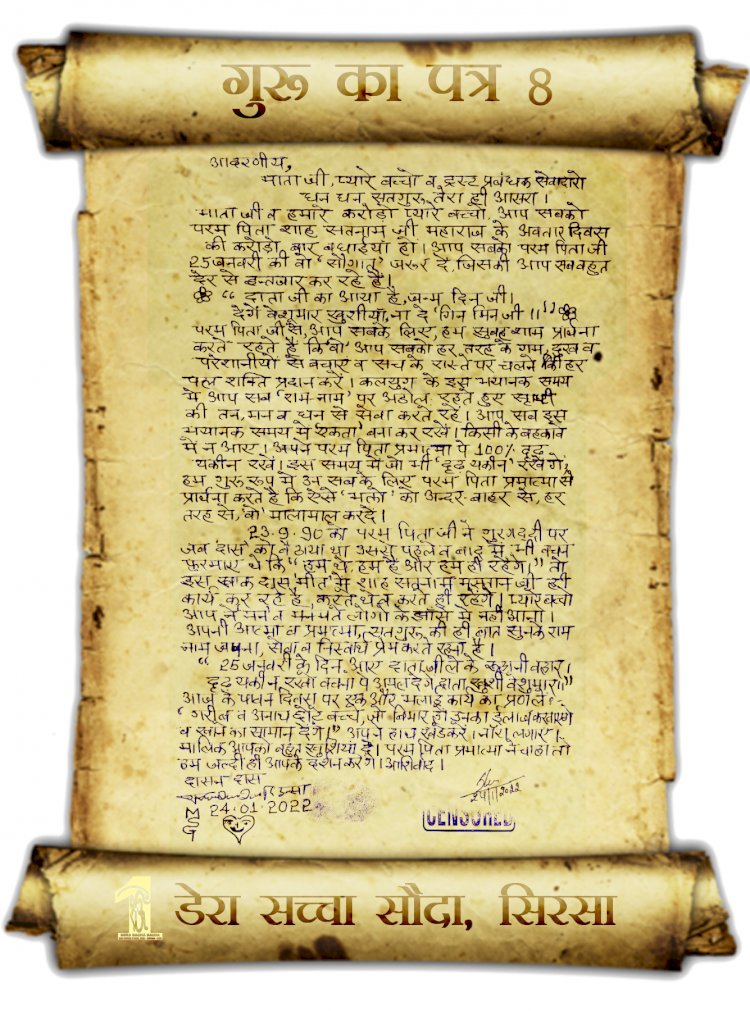 गुरू का पत्र 8
आदरणीय,
माता जी, प्यारे बच्चो व ट्रस्ट प्रबंधक सेवादारो
धन धन सतगुरु तेरा ही आसरा।
माता जी व हमारे करोड़ो प्यारे बच्चो, आप सबको
परम पिता शाह सतनाम जी महाराज के अवतार दिवस
की करोड़ो बार बधाईयां हो। आप सबको परम पिता जी
25 जनवरी की वो 'सौगात' जरूर दे, जिसकी आप सब बहुत
देर से इन्तजार कर रहे हैं।
“ दाता जी का आया है, जन्म दिन जी।
देंगे बेशुमार खुशीयां, ना दे गिन मिन जी।।"
परम पिता जी से, आप सबके लिए, हम सुबह शाम प्रार्थना
करते रहते है कि 'वो' आप सबको हर तरह के गम, दुख व
परेशानीयों से बचाए व सच के रास्ते पर चलने की हर
पल शक्ति प्रदान करें। कलयुग के इस भयानक समय
मे आप सब 'राम-नाम' पर अडोल रहते हुए सृष्टि
की तन, मन व धन से सेवा करते रहें। आप सब इस
भयानक समय में 'एकता' बना कर रखें। किसी के बहकावे
में न आए। अपने परम पिता प्रमात्मा पे 100% दृढ़
यकीन रखें। इस समय में जो भी 'दृढ़ यकीन' रखेंगे,
हम गुरू रूप मे उन सब के लिए परम पिता प्रमात्मा से
प्रार्थना करते है कि ऐसे 'भक्तो' को अन्दर-बाहर से, हर
तरह से, 'वो' मालामाल करदें।
23.9.90 को परम पिता जी ने गुरगद्दी पर
जब 'दास' को बैठाया था उससे पहले व बाद में भी वचन
फरमाए थे कि “हम थे, हम है और हम ही रहेंगे।” तो
इस खाक दास 'मीत' में शाह सतनाम, मस्तान जी ही
कार्य कर रहे है, करते थे व करते ही रहेंगे। प्यारे बच्चो
आप ने मन व मनमते लोगो के झांसे में नहीं आना।
अपनी आत्मा व प्रमात्मा, सतगुरू की ही बात सुनके राम
नाम जपना, सेवा व निस्वार्थ प्रेम करते रहना है।
“ 25 जनवरी के दिन आए दाता जी ले के बहार।
दृढ़ यकीन रखो वचनो पे अमल देंगे दाता खुशी बेशुमार।।”
आज के पावन दिवस पर एक और भलाई कार्य का प्रण ले:-
'गरीब व अनाथ छोटे बच्चे, जो बिमार हो उनका ईलाज करवाएंगे
व खाने का सामान देंगे।' आप ने हाथ खड़े करें। नारा लगाए।
मालिक आपको बहुत खुशियां दे। परम पिता प्रमात्मा ने चाहा तो
हम जल्दी ही आपके दर्शन करेंगे। आशिर्वाद।
दासन दास
24.01.2022
MSG
CENSORED
डेरा सच्चा सौदा, सिरसा